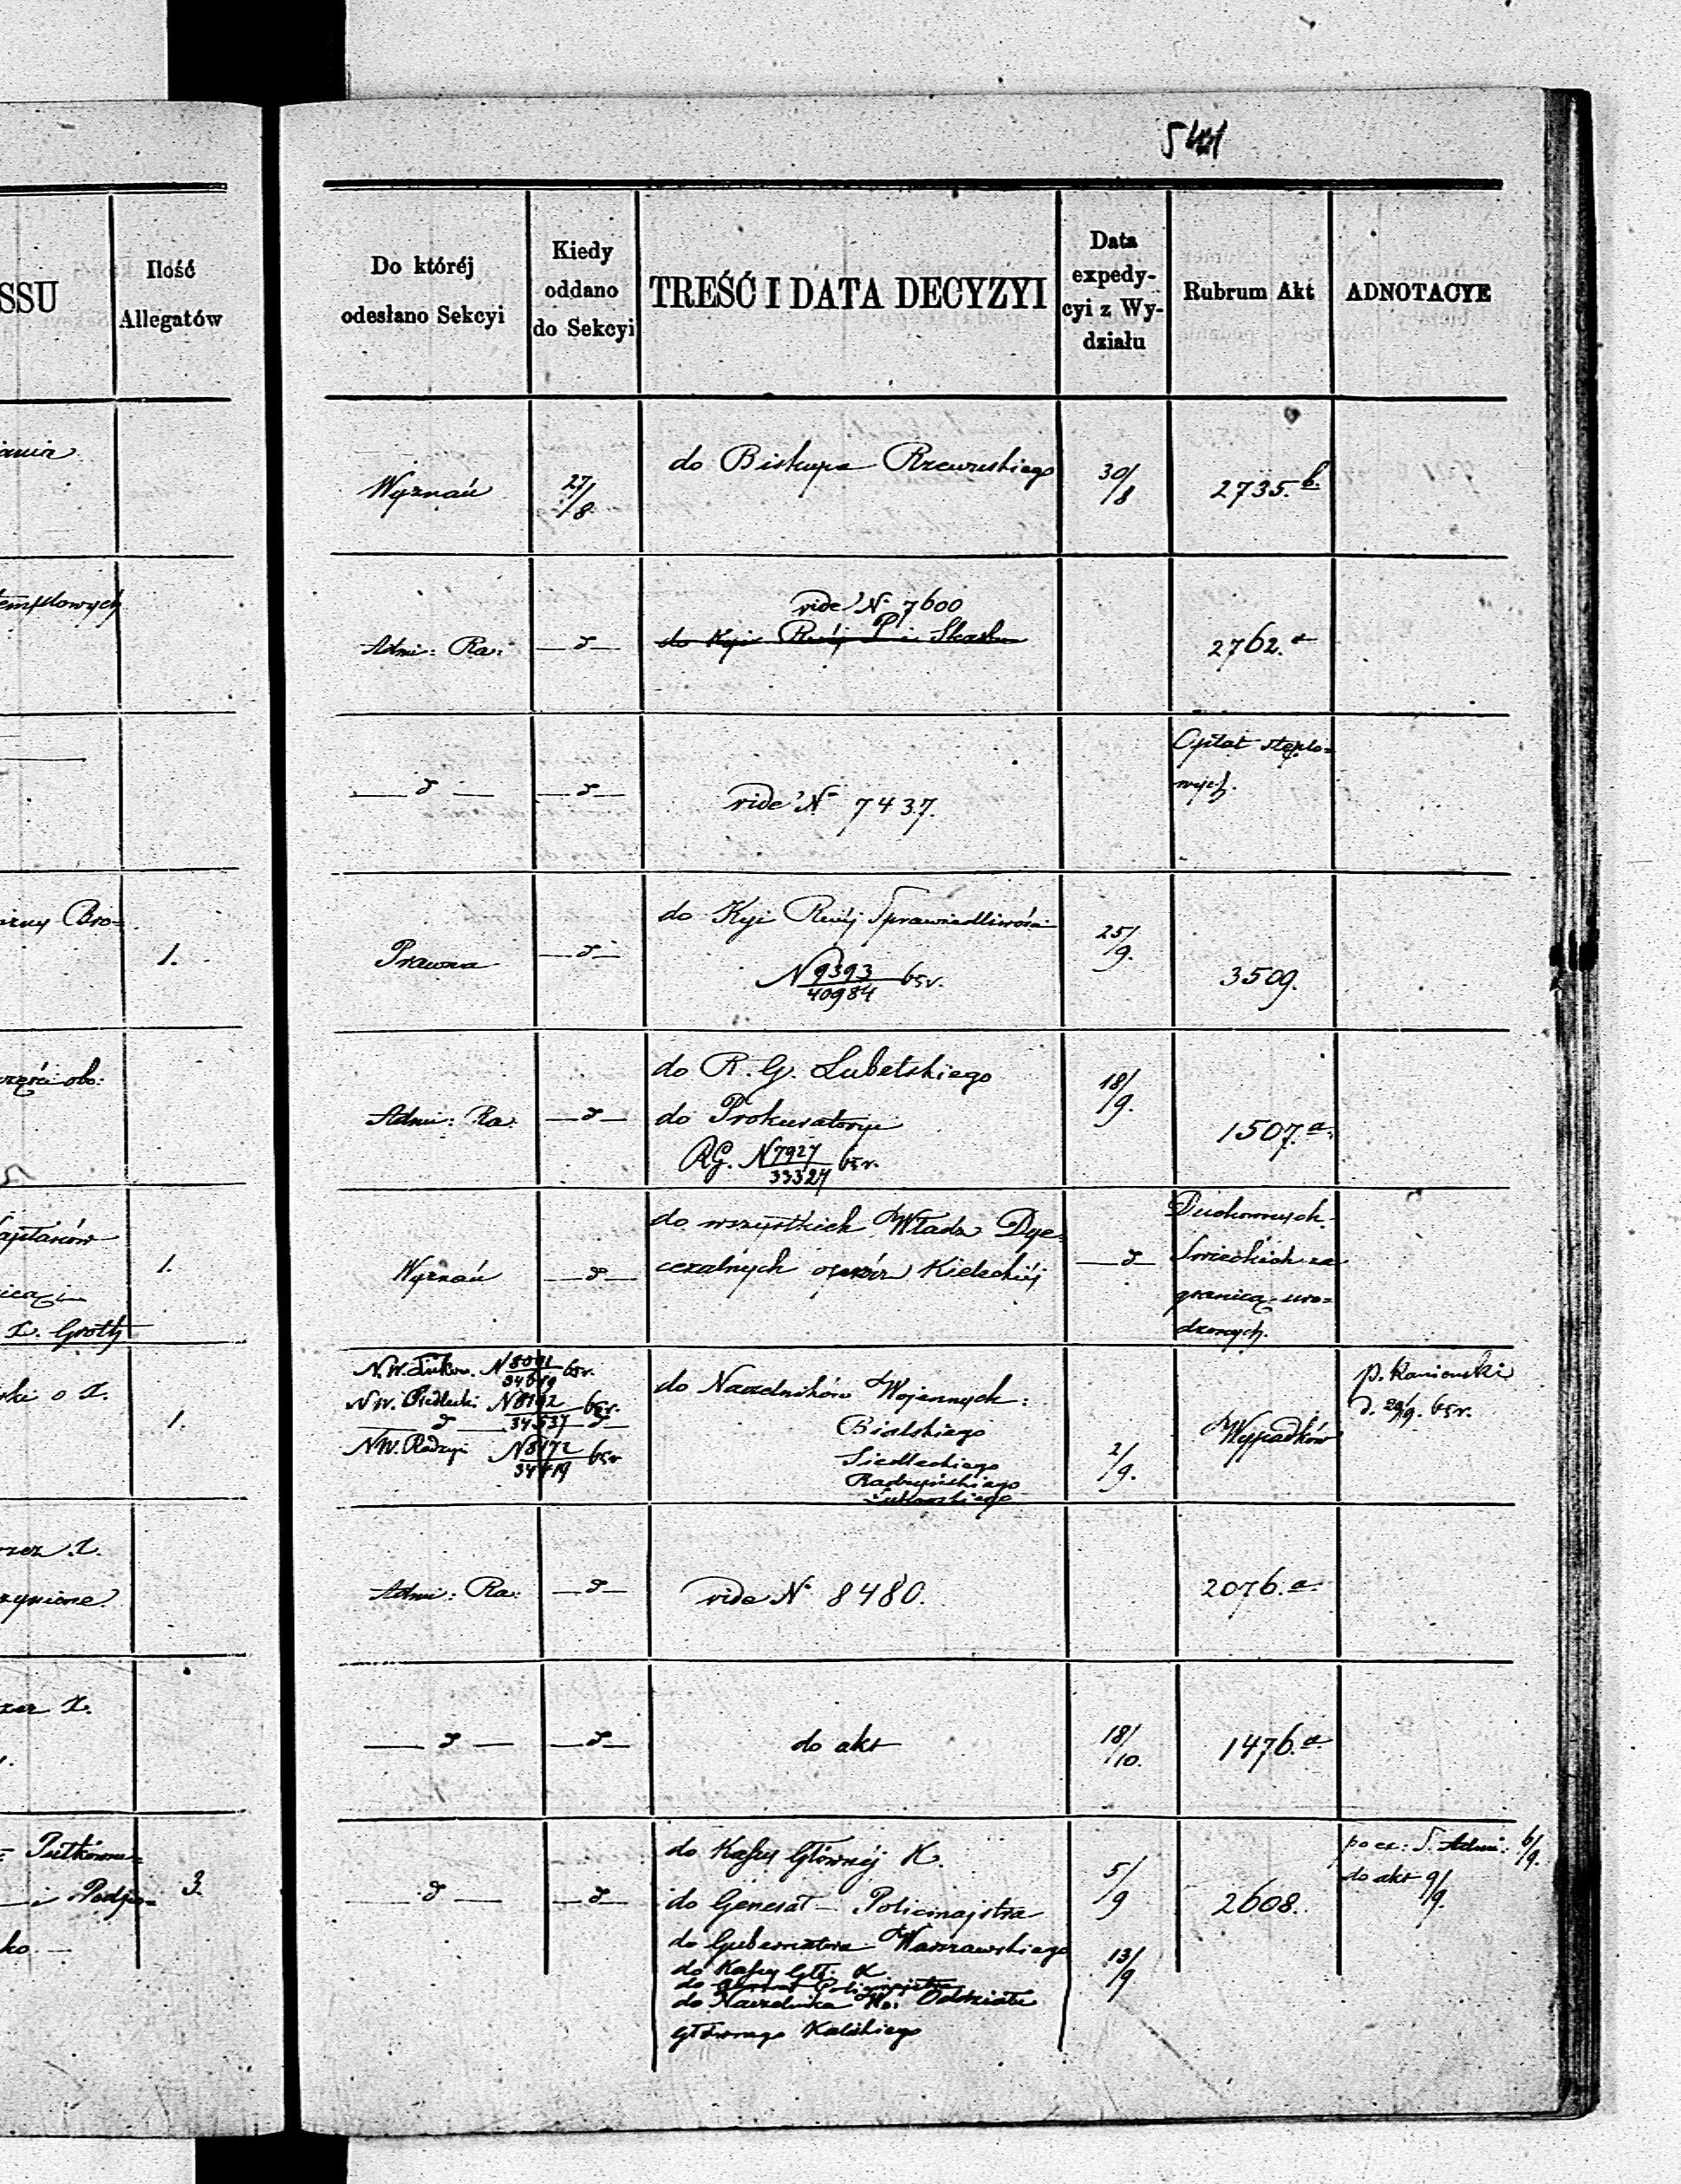 541
SSU
Ilość
Allegatów
Do któréj
odesłano Sekcyi
Kiedy
oddano
do Sekcyi
TREŚĆ I DATA DECYZYI
Data
expedy-
cyi z Wy-
działu
Rubrum Akt
ADNOTACYE
Wyznań
27/8
do Biskupa Rzewuskiego
30/8
2735.b.
templowych
Admi: Ra:
—d—
vide N. 7600
do Kyi Rwéj P i Skarbu
2762.a
—d—
—d—
vide N. 7437.
Opłat stęplo=
wych.
1.
Prawna
—d—
do Kyi Rwéj Sprawiedliwości
N 9393/40984 65r.
25/9.
3509.
Admi: Ra:
—d—
do R. G. Lubelskiego
do Prokuratoryi
RG. N 7927/33327 65r.
18/9.
1507.a.
Z. Groth
1.
Wyznań
—d—
do wszystkich Władz Dye=
cezalnych oprócz Kieleckiéj
—d—
Duchownych
Swieckich za
granicą uro=
dzonych.
1.
N.W. Łukow. N 8091/34619 65r.
N.W. Siedlecki N 8192/34537 65r.
—d— —d—
N.W. Radzyń N 8172/34419 65r
do Naczelników Wojennych:
Bialskiego
Siedleckiego
Radzyńskiego
Łukowskiego
2/9.
Wypadków
p. Kamienski
d. 29/9. 65r.
Admi: Ra:
—d—
vide N. 8480.
2076.a.
—d—
—d—
do akt
18/10.
1476.a.
i Podpo=
3.
—d—
—d—
do Kassy Głównéj K.
do Generał - Policmajstra
do Gubernatora Warszawskiego
do Kassy Głł: K
do Generał Policmajstra
do Naczelnika Wo: Oddziału
głównego Kaliskiego
5/9
13/9
2608.
po ex: S. Admi: 6/9.
do akt 9/9.